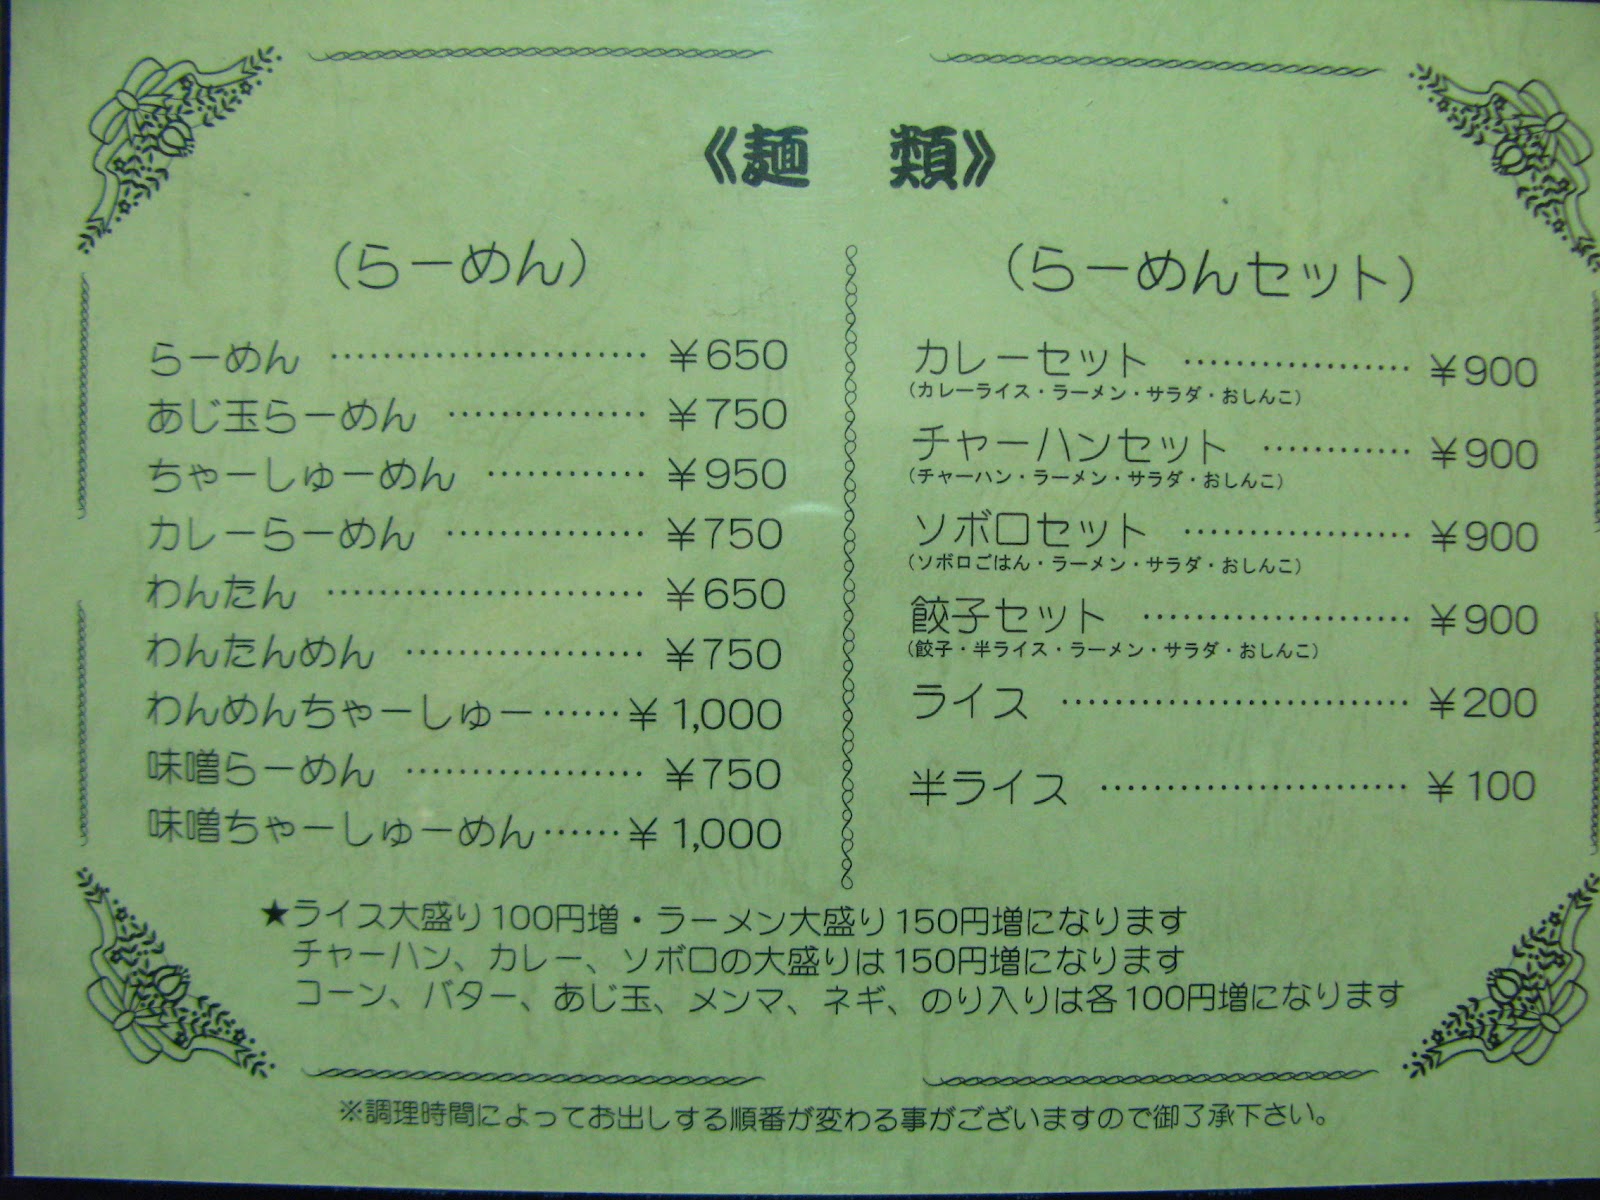 《麺　類》
（らーめん）
らーめん ……………………… ￥650
あじ玉らーめん …………… ￥750
ちゃーしゅーめん ………… ￥950
カレーらーめん …………… ￥750
わんたん ……………………… ￥650
わんたんめん ……………… ￥750
わんめんちゃーしゅー……￥1,000
味噌らーめん ……………… ￥750
味噌ちゃーしゅーめん……￥1,000
（らーめんセット）
カレーセット ……………… ￥900
（カレーライス・ラーメン・サラダ・おしんこ）
チャーハンセット ………… ￥900
（チャーハン・ラーメン・サラダ・おしんこ）
ソボロセット ……………… ￥900
（ソボロごはん・ラーメン・サラダ・おしんこ）
餃子セット ………………… ￥900
（餃子・半ライス・ラーメン・サラダ・おしんこ）
ライス ……………………… ￥200
半ライス …………………… ￥100
★ライス大盛り100円増・ラーメン大盛り150円増になります
チャーハン、カレー、ソボロの大盛りは150円増になります
コーン、バター、あじ玉、メンマ、ネギ、のり入りは各100円増になります
※調理時間によってお出しする順番が変わる事がございますので御了承下さい。